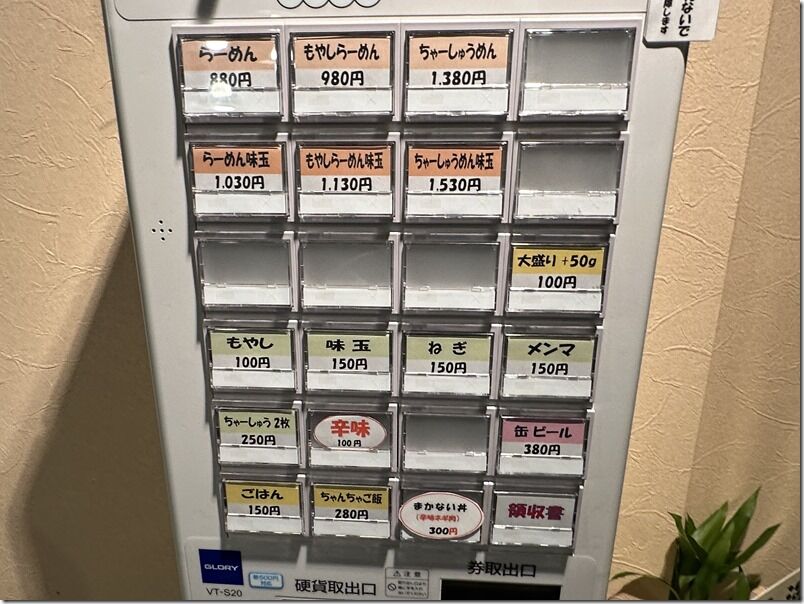 ないで
します
らーめん
880円
もやしらーめん
980円
ちゃーしゅうめん
1.380円
らーめん味玉
1.030円
もやしらーめん味玉
1.130円
ちゃーしゅうめん味玉
1.530円
大盛り +50g
100円
もやし
100円
味玉
150円
ねぎ
150円
メンマ
150円
ちゃーしゅう 2枚
250円
辛味
100円
缶ビール
380円
ごはん
150円
ちゃんちゃご飯
280円
まかない丼
(辛味ネギ肉)
300円
領収書
GLORY
VT-S20
新500円
対応
硬貨取出口
注意
券取出口